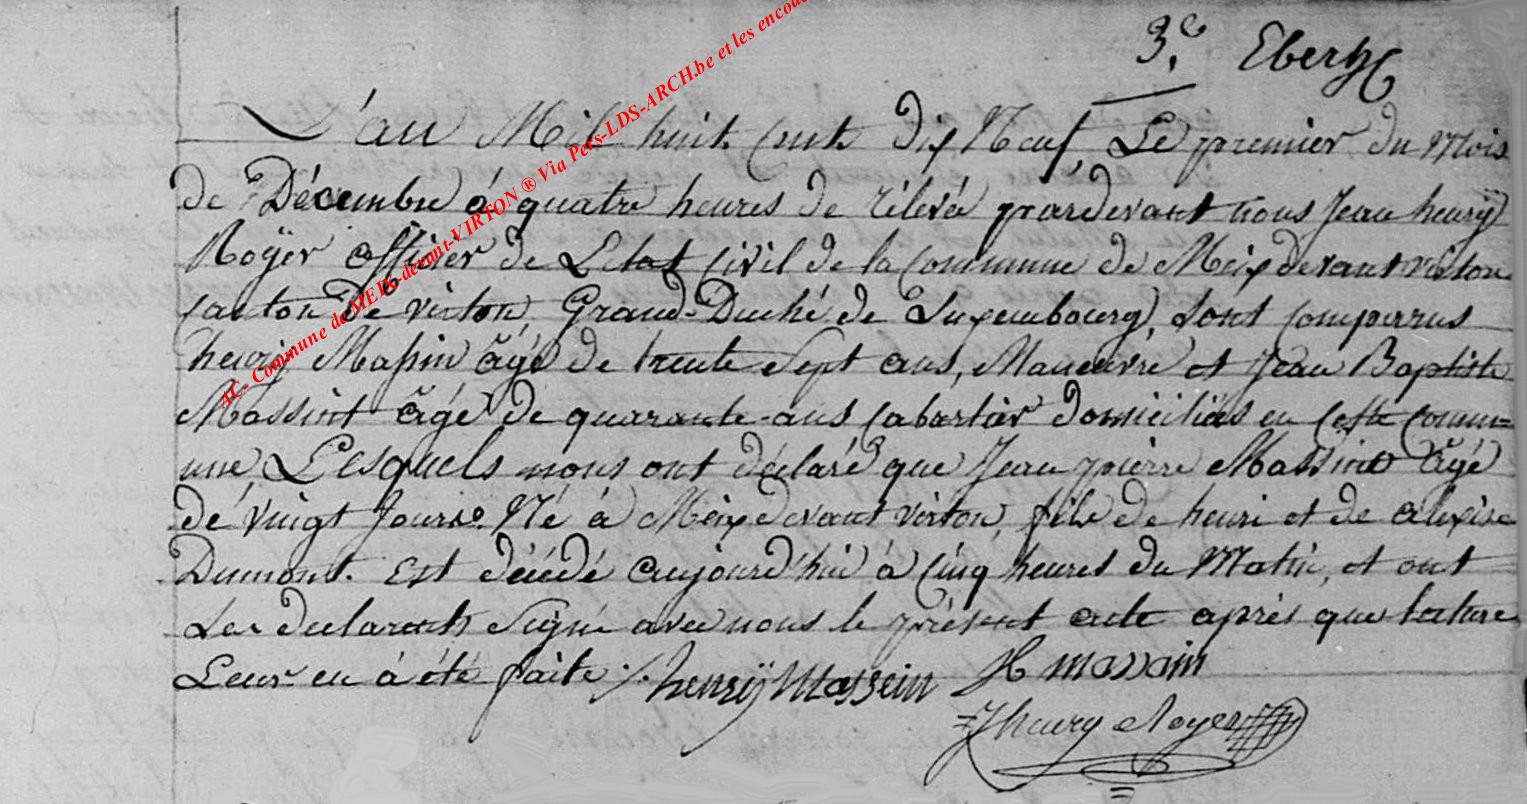 3e Eberh
AC- Commune de MEIX-devant-VIRTON ® Via Pers-LDS-ARCH.be et les encoda
L'an Mil huit Cent dix Neuf, Le premier du Mois
de Décembre á quatre heures de rélévé pardevant nous Jean henrÿ
Roÿer officier de L'etat Civil de la Commune de Meix devant virton
Canton De virton Grand-Duché de Luxembourg, Sont Comparus
henrij Massin âgé de trente Sept ans, Maneuvre et Jean Baptiste
Massint âgé de quarante ans Cabartier domiciliés en Cette Comm=
une, Lesquels nous ont déclaré que Jean pierre Massint âgé
dé vingt Jours. Né à Meix devant virton, fils de henri et de alexise
Dumont. Est décédé aujourd'hui à Cinq heures du Matin, et ont
Les declarants Signé avec nous le présent acte après que lecture
Leur en á été faite ./. henrÿ Massein H massain
J henry Royer